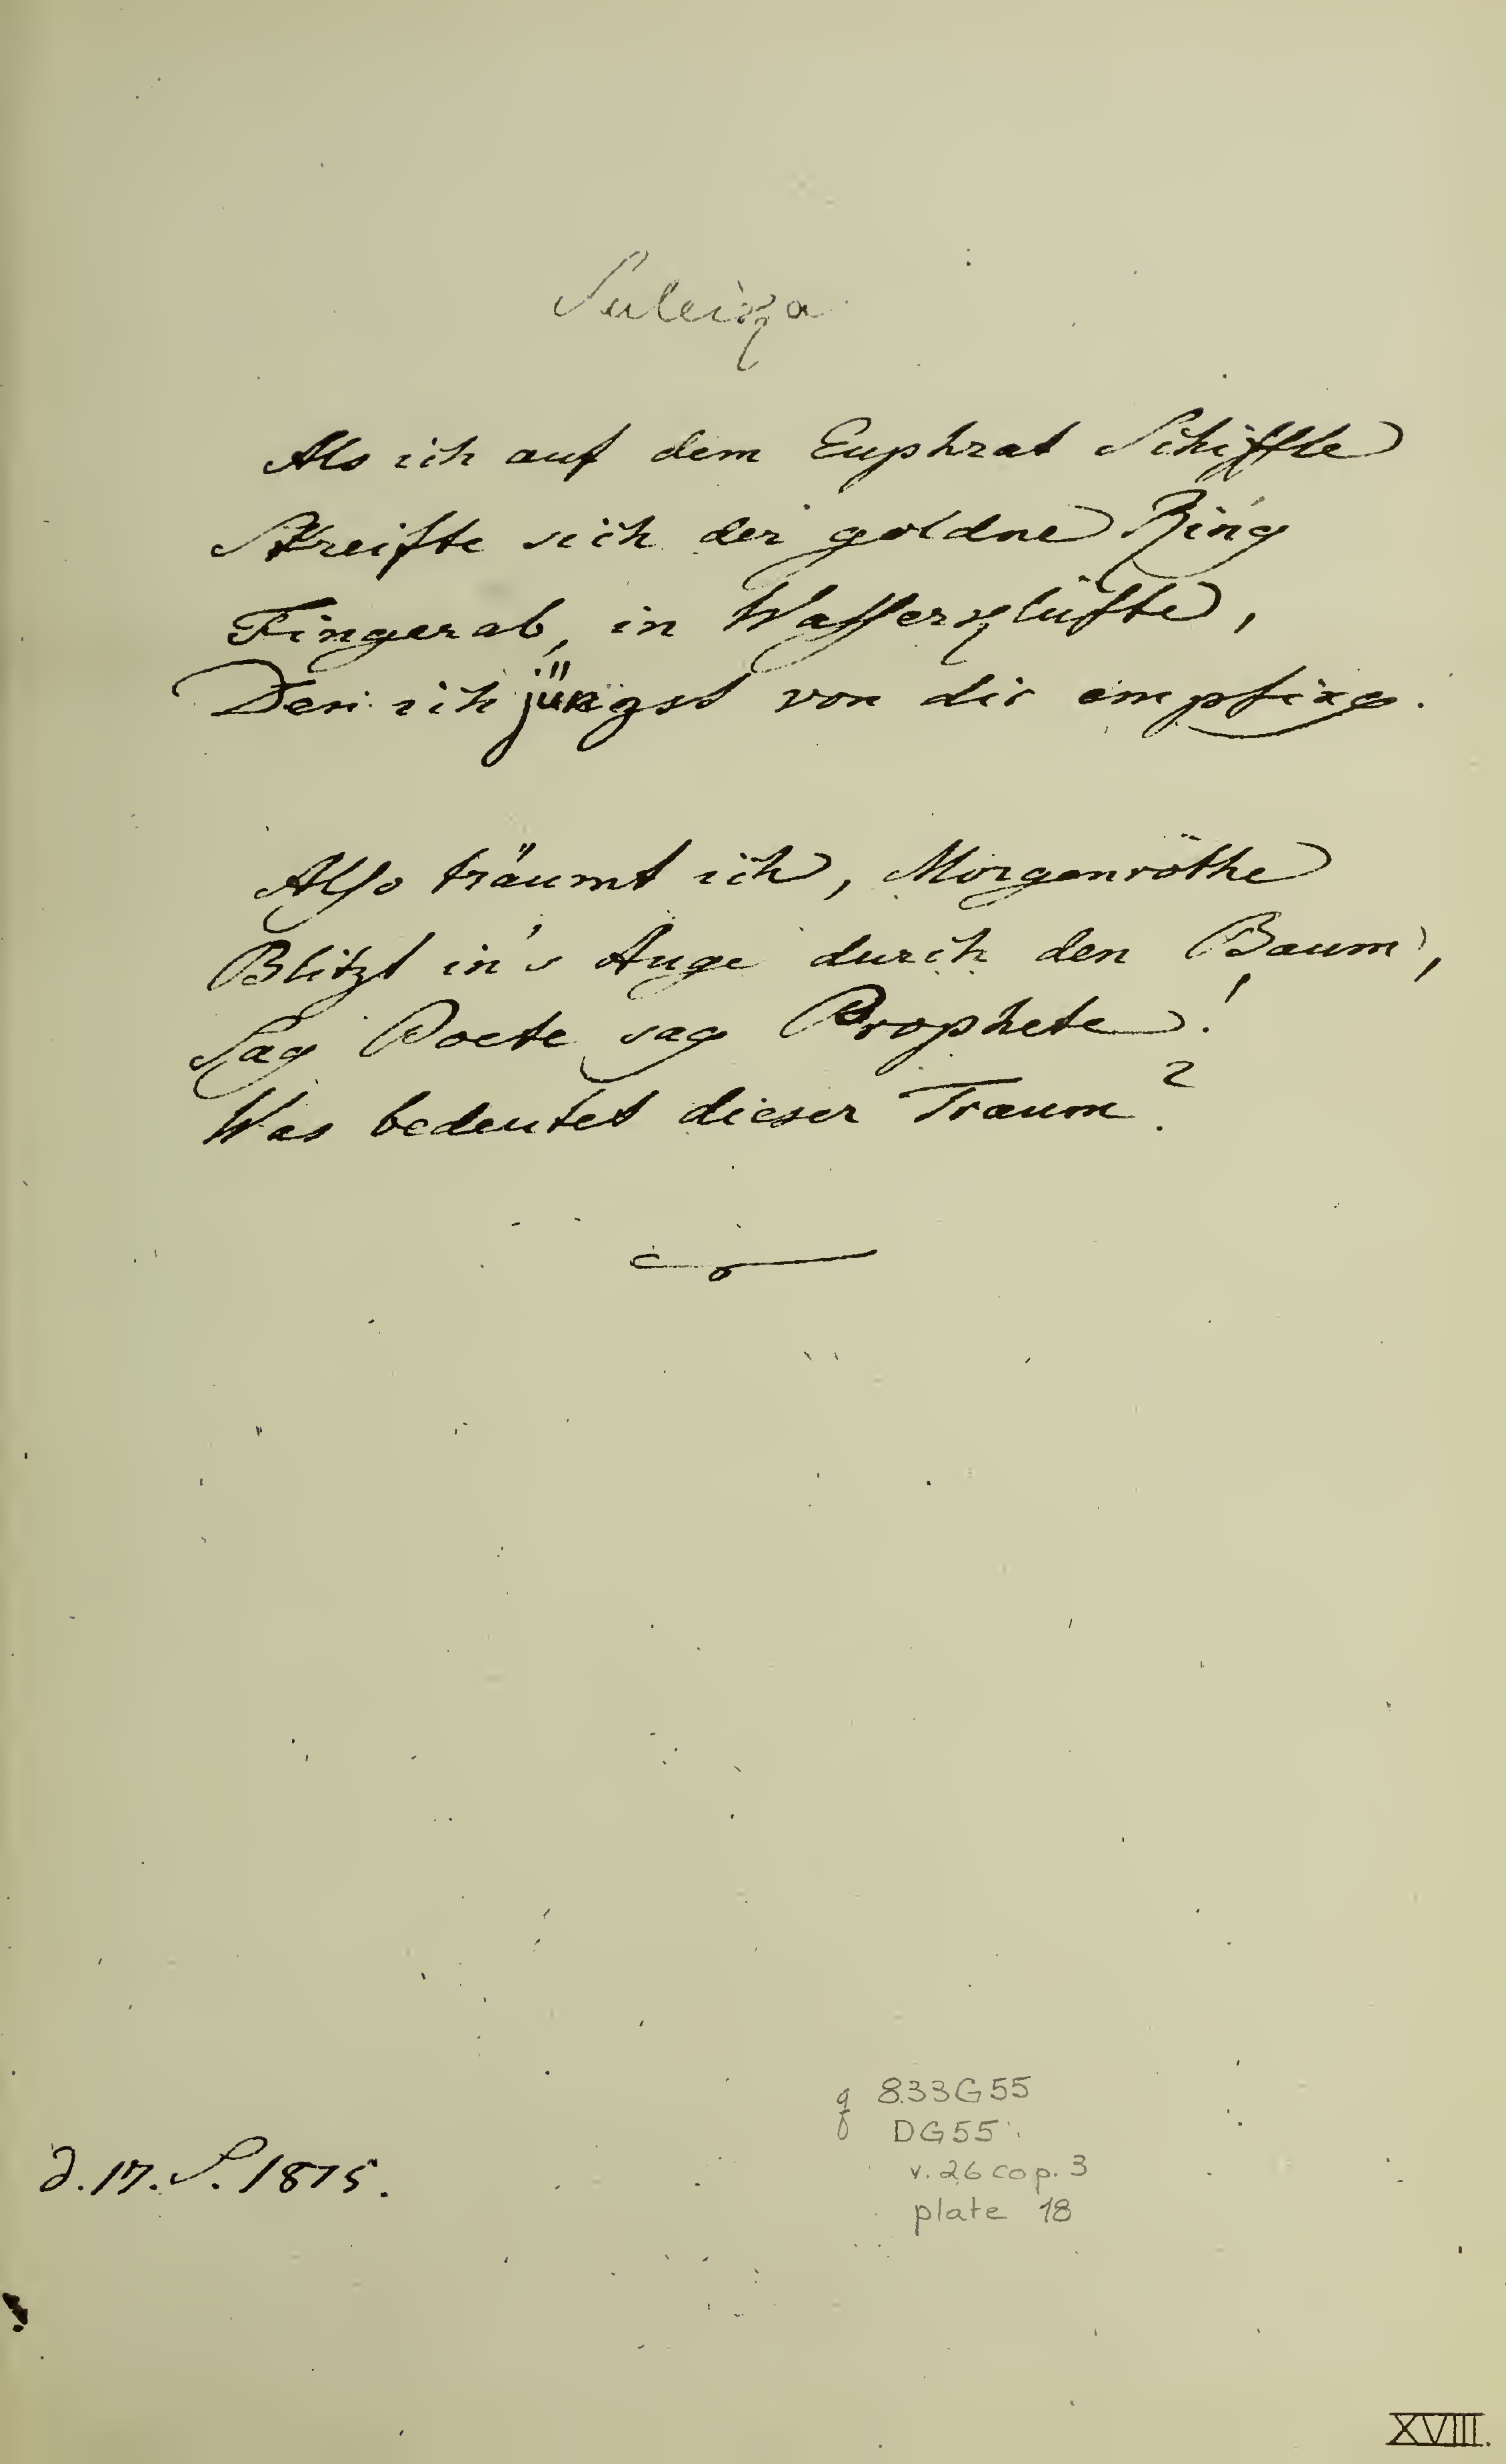 Suleika
Als ich auf dem Euphrat Schiffte
Streifte sich der goldne Ring
Fingerab, in Wasserklüfte,
Den ich jüngst von dir empfing.
Also träumt ich, Morgenröthe
Blitzt in's Auge durch den Baum,
Sag Poete sag Prophete!
Was bedeutet dieser Traum?
d. 17. S. 1815.
q 833G55
DG55
v. 26 cop. 3
plate 18
XVIII.